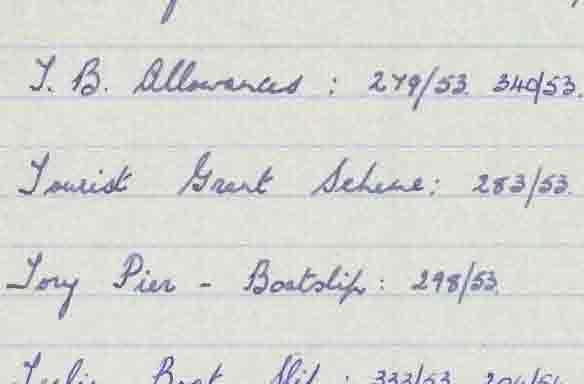 T. B. Allowances : 279/53. 340/53.
Tourist Grant Scheme : 283/53.
Tory Pier - Boatslip : 298/53.
Boat Slip : 333/53. 204/54